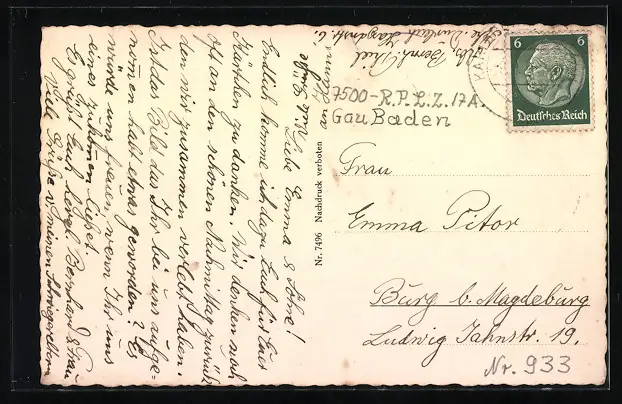 Liebe Emma & Söhne!
Endlich komme ich dazu Euch für Eure
Kärtchen zu danken. Wir denken noch
oft an den schönen Nachmittag zurück
den wir zusammen verlebt haben.
Ist das Bild das Ihr bei uns aufge-
nommen habt etwas geworden? Es
würde uns freuen, wenn Ihr uns
eines zukommen ließet.
Es grüßt Euch herzl. Bernhard & Frau
Viele Grüße v. meinen Schwiegereltern
Nr. 7496 Nachdruck verboten
7500-R.P.L.Z. 17A.
Gau Baden
6 6
Deutsches Reich
Frau
Emma Pitor
Burg b. Magdeburg
Ludwig Jahnstr. 19.
Nr. 933